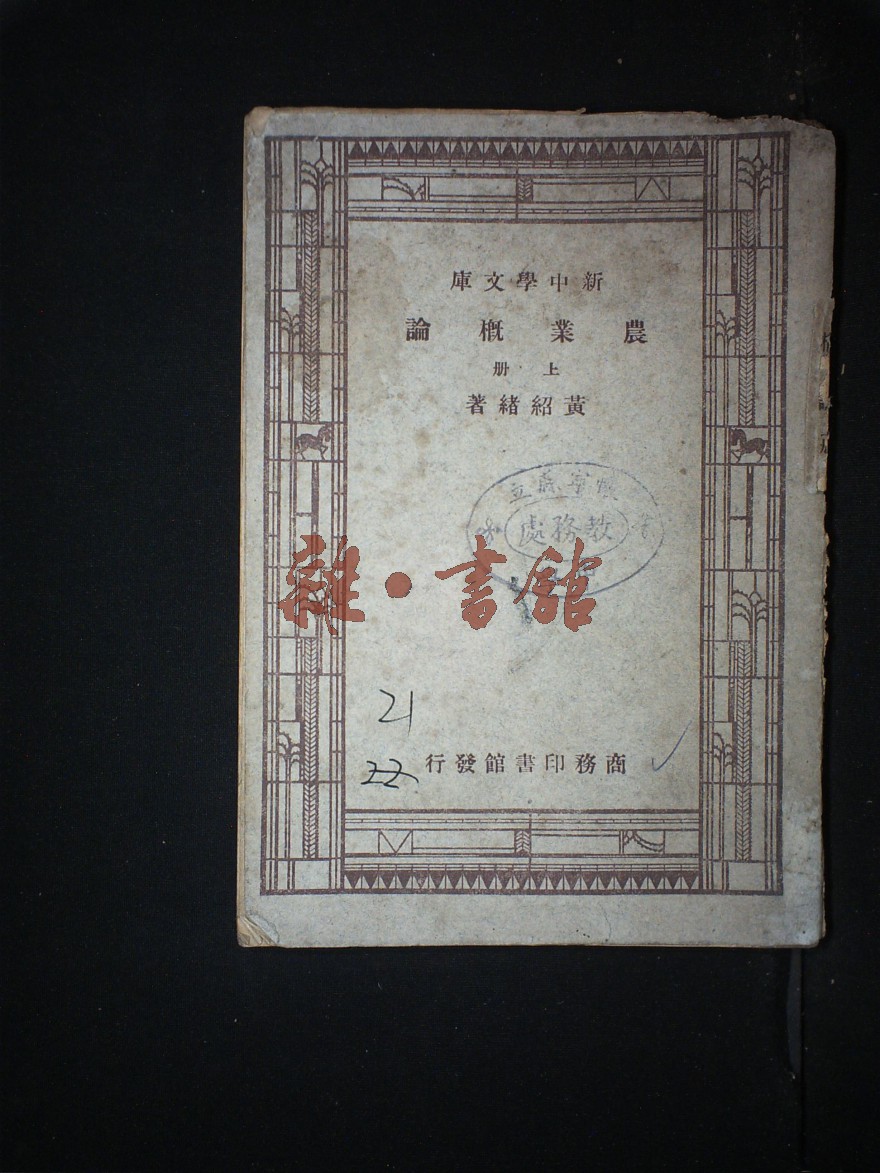 新中學文庫
農業概論
上册
黃紹緒著
寧縣立
教務處
雜·書館
21
22
商務印書館發行